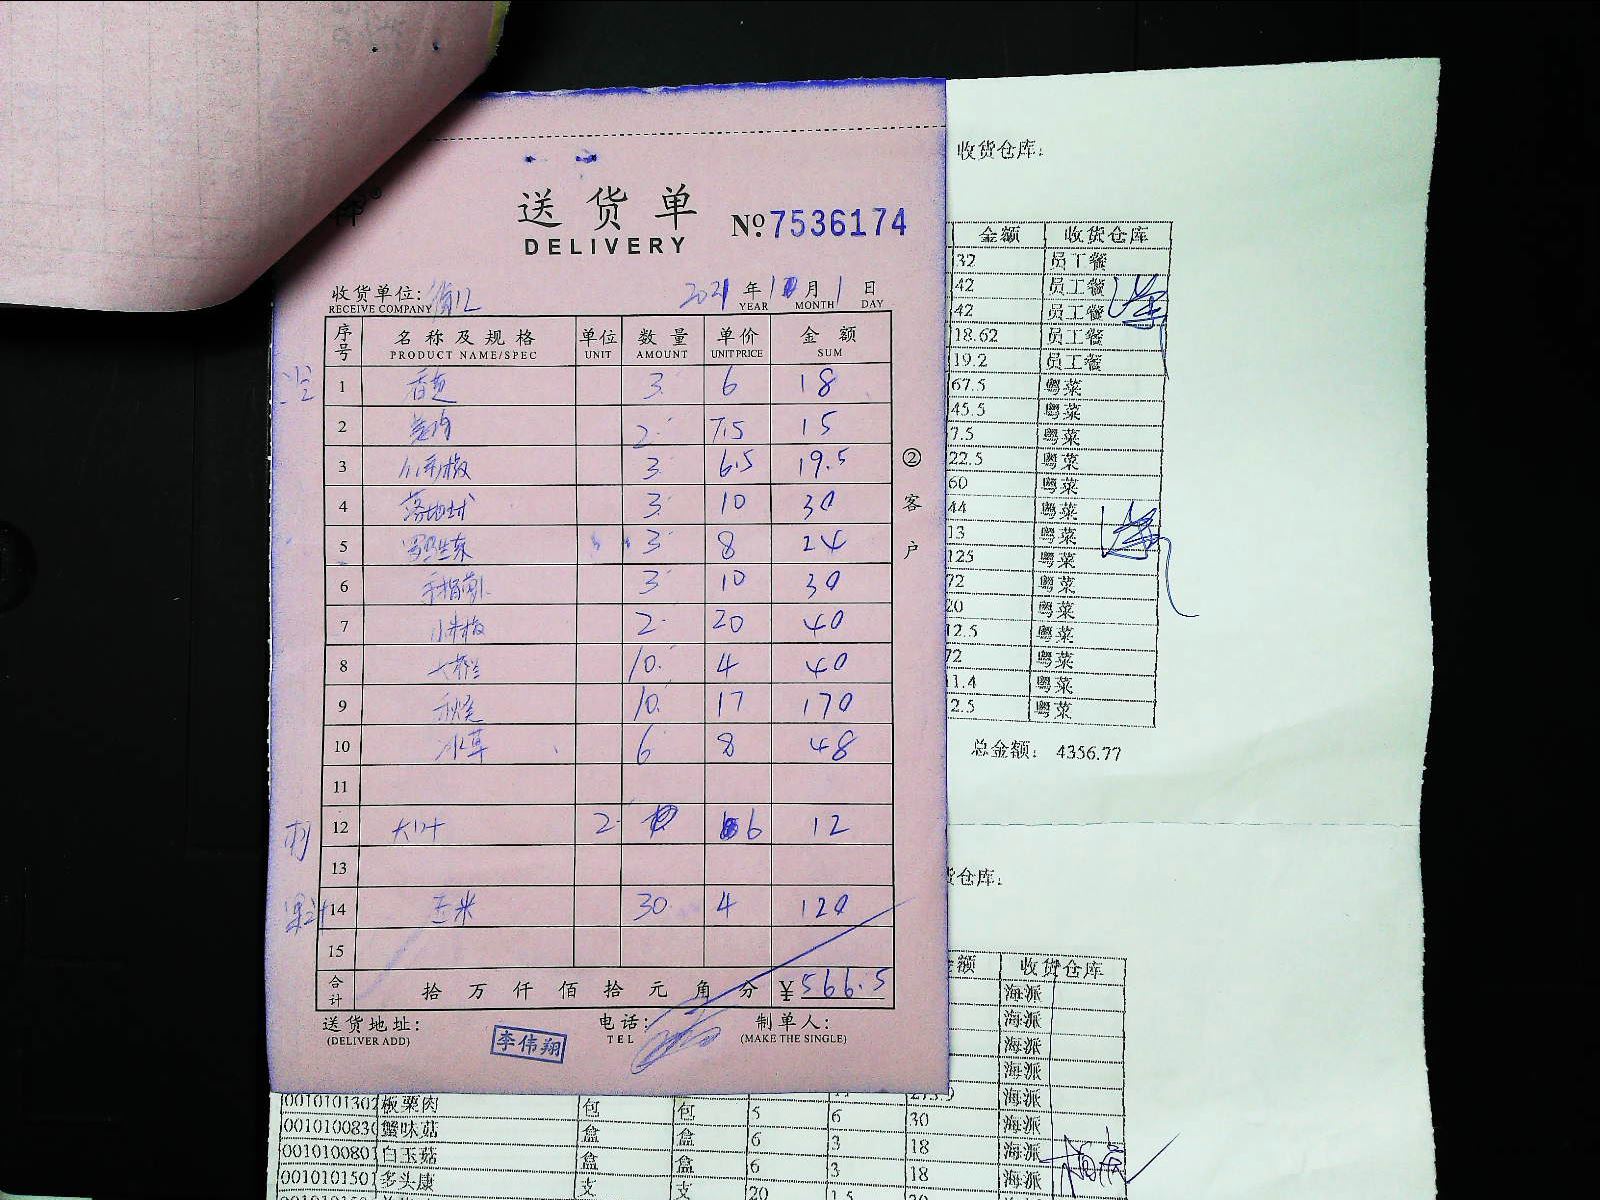 送货单
DELIVERY
№ 7536174
收货单位:
RECEIVE COMPANY
2021 年 10 月 1 日
YEAR MONTH DAY
序号 名称及规格 单位 数量 单价 金额
PRODUCT NAME/SPEC UNIT AMOUNT UNIT PRICE SUM
1 3 6 18
2 2 7.5 15
3 3 6.5 19.5
4 3 10 30
5 3 8 24
6 3 10 30
7 小米椒 2 20 40
8 10 4 40
9 10 17 170
10 冰草 6 8 48
11
12 大叶 2 6 12
13
14 玉米 30 4 120
15
合计 拾 万 仟 佰 拾 元 角 分 ¥566.5
送货地址:
(DELIVER ADD)
李伟翔
电话:
TEL
制单人:
(MAKE THE SINGLE)
②客户
收货仓库:
金额 收货仓库
32 员工餐
42 员工餐
42 员工餐
18.62 员工餐
19.2 员工餐
67.5 粤菜
45.5 粤菜
7.5 粤菜
22.5 粤菜
60 粤菜
44 粤菜
13 粤菜
125 粤菜
72 粤菜
20 粤菜
12.5 粤菜
72 粤菜
11.4 粤菜
2.5 粤菜
总金额: 4356.77
货仓库:
额 收货仓库
海派
海派
海派
海派
海派
0010101302 板栗肉 包 包 5 6 30 海派
001010083 蟹味菇 盒 盒 6 3 18 海派
001010080 白玉菇 盒 盒 6 3 18 海派
001010150 多头康 支 支 20 1.5